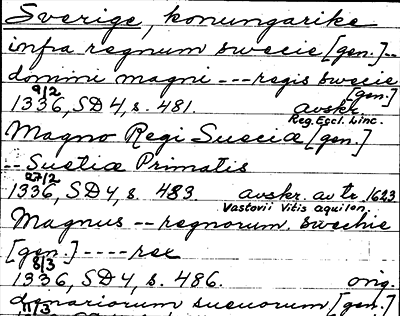 Sverige, konungarike
infra regnum swecie [gen.]--
domini magni --- regis swecie
[gen.]
9/2
1336, SD 4, s. 481. avskr.
Reg. Eccl. Linc.
Magno Regi Sueciæ [gen.]
-- Suetiæ Primatis
27/2
1336, SD 4, s. 483. avskr. av tr. 1623
Vastovii Vitis aquilon.
Magnus -- regnorum swechie
[gen.] ---- rex
8/3
1336, SD 4, s. 486. orig.
denariorum sueuorum [gen.]
11/3